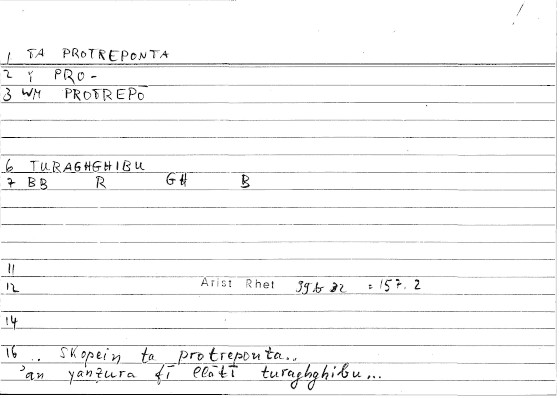 1 TA PROTREPONTA
2 Y PRO-
3 WM PROTREPO
6 TURAGHGHIBU
7 BB R GH B
11
12 Arist Rhet 99b32 = 157.2
14
16 .. skopein ta protreponta..
'an yanẓura fī llātī turaghghibu...